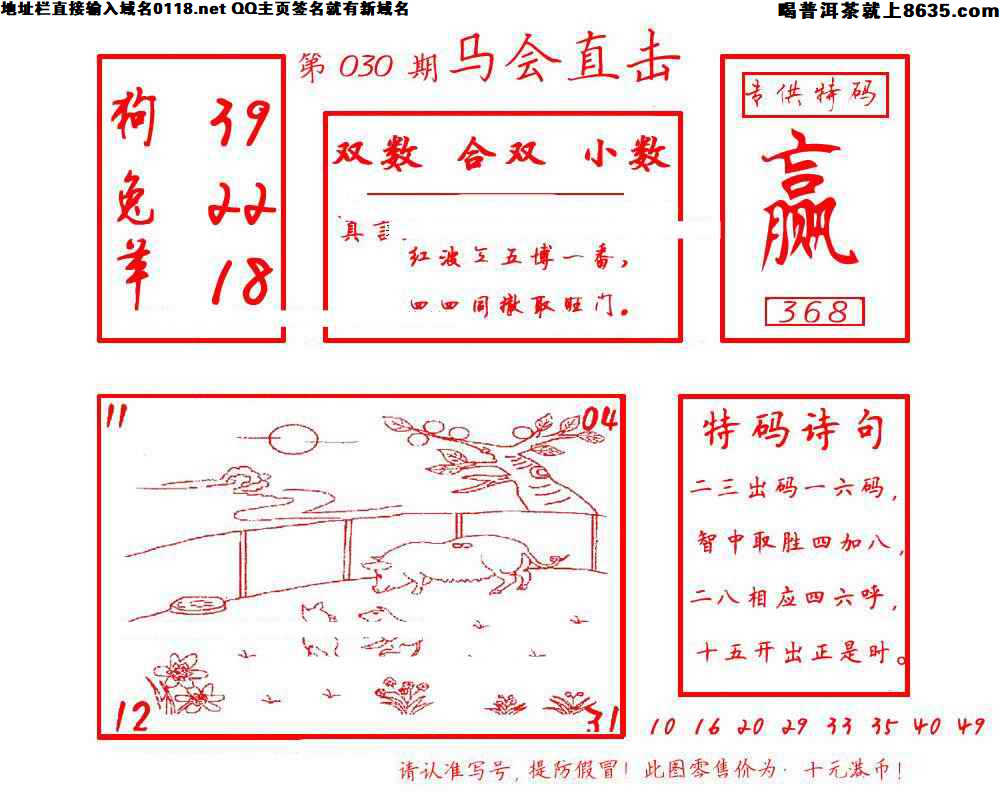 地址栏直接输入域名0118.net QQ主页签名就有新域名
喝普洱茶就上8635.com
第 030 期 马会直击
狗 39
兔 22
羊 18
双数 合双 小数
真言
红波五博一番，
四四同撤取旺门。
专供特码
赢
368
11
04
12
31
特码诗句
二三出码一六码，
智中取胜四加八，
二八相应四六呼，
十五开出正是时。
10 16 20 29 33 35 40 49
请认准写号，提防假冒！此图零售价为·十元港币！